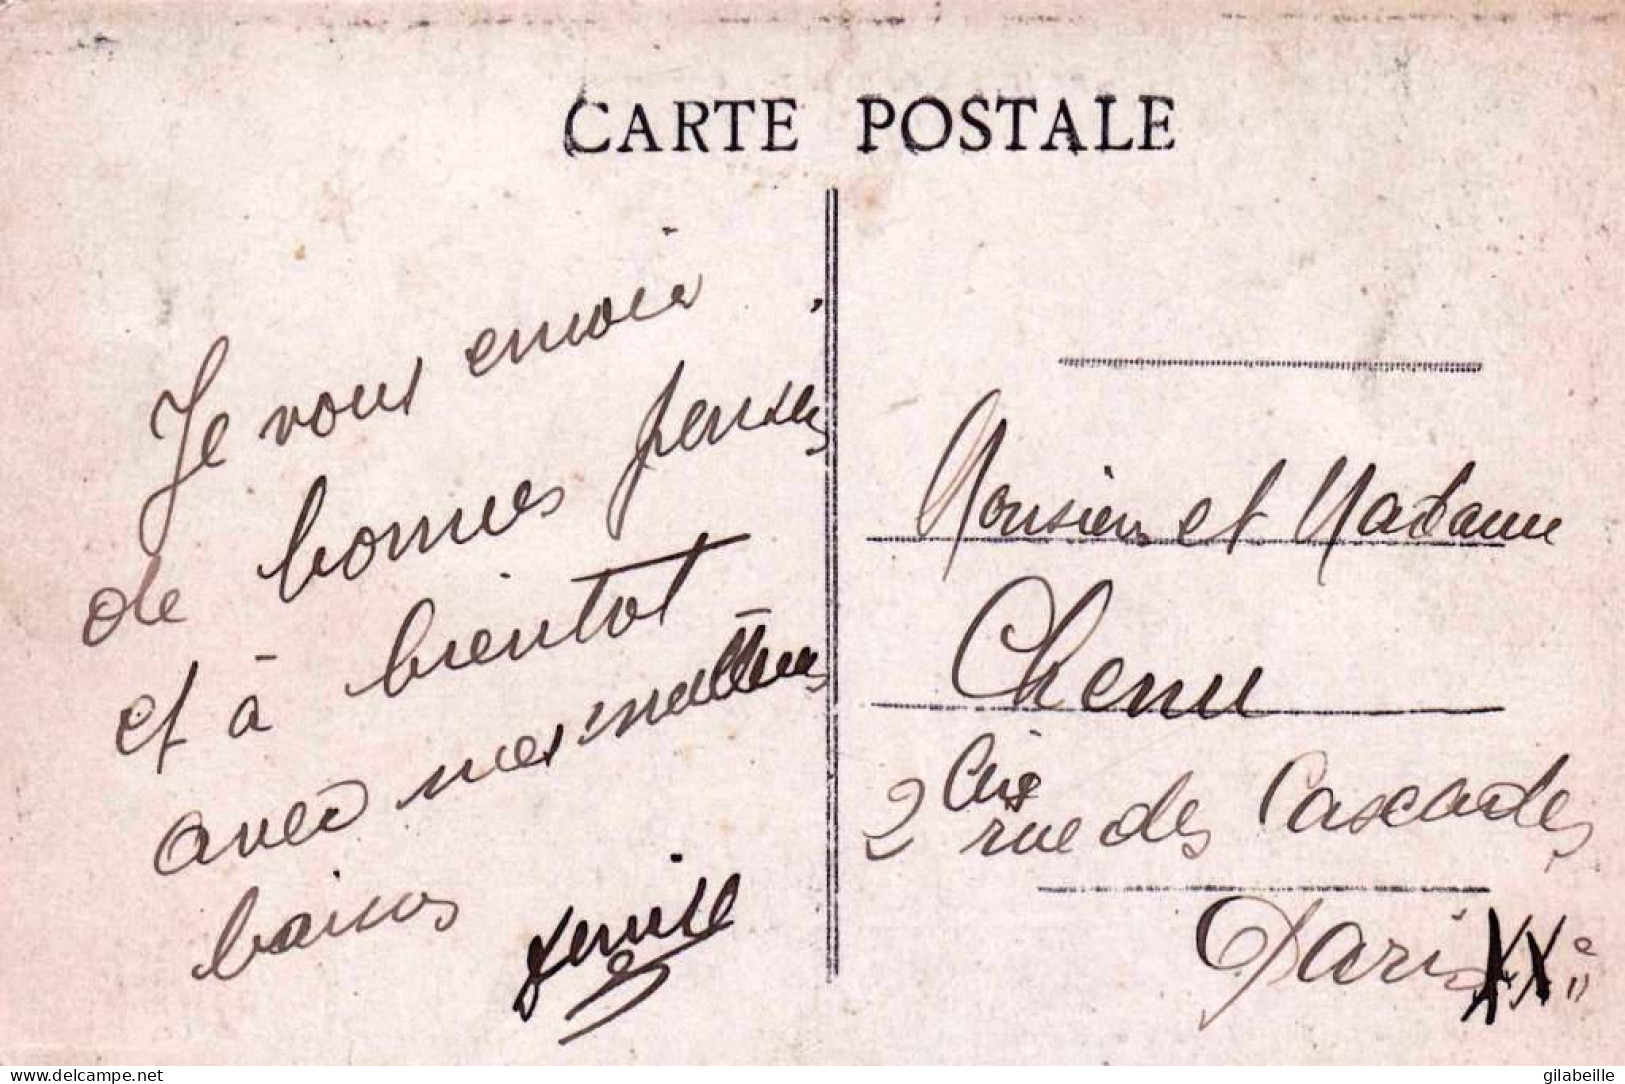 CARTE POSTALE
Je vous envoie
de bonnes pensées
et à bientot
avec nos meilleurs
baisers
Denise
Monsieur et Madame
Chenu
2 bis rue des Cascades
Paris XXe
delcampe.net
gilabeille